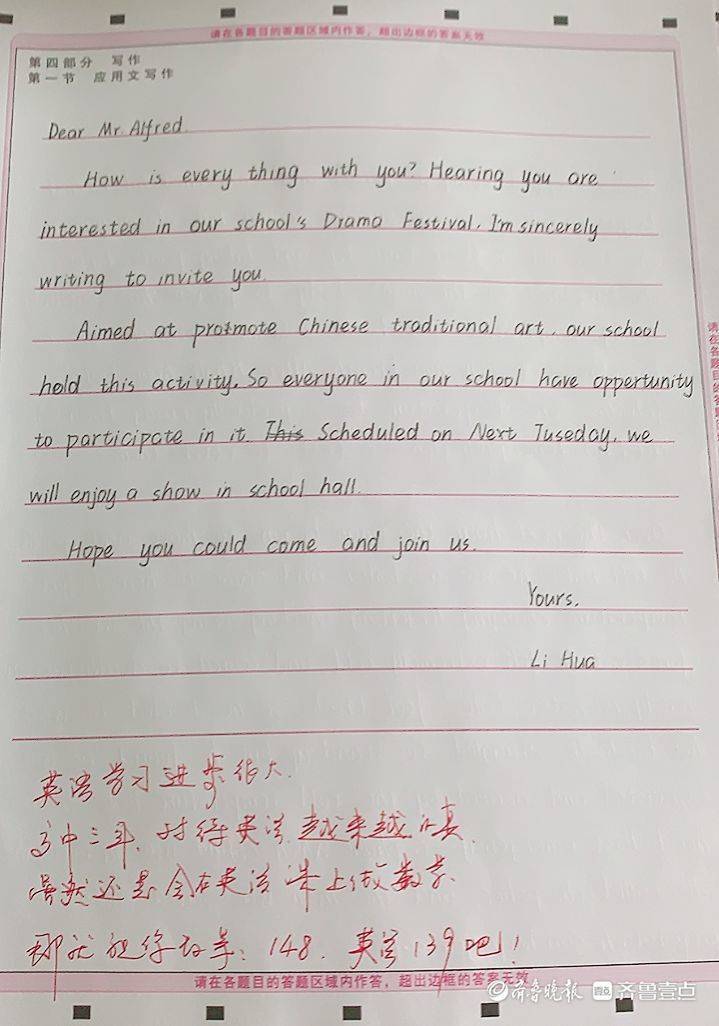 请在各题目的答题区域内作答，超出边框的答案无效
第四部分 写作
第一节 应用文写作
Dear Mr. Alfred.
How is every thing with you? Hearing you are
interested in our school's Drama Festival, I'm sincerely
writing to invite you.
Aimed at promote Chinese traditional art, our school
hold this activity. So everyone in our school have oppertunity
to participate in it. This Scheduled on Next Tuseday, we
will enjoy a show in school hall.
Hope you could come and join us.
Yours,
Li Hua
英语学习进步很大.
高中三年, 对待英语越来越认真
虽然还是会在英语课上做数学.
那就祝你数学: 148, 英语139吧!
请在各题目的答题区域内作答，超出边框的答案无效
齐鲁晚报 齐鲁壹点